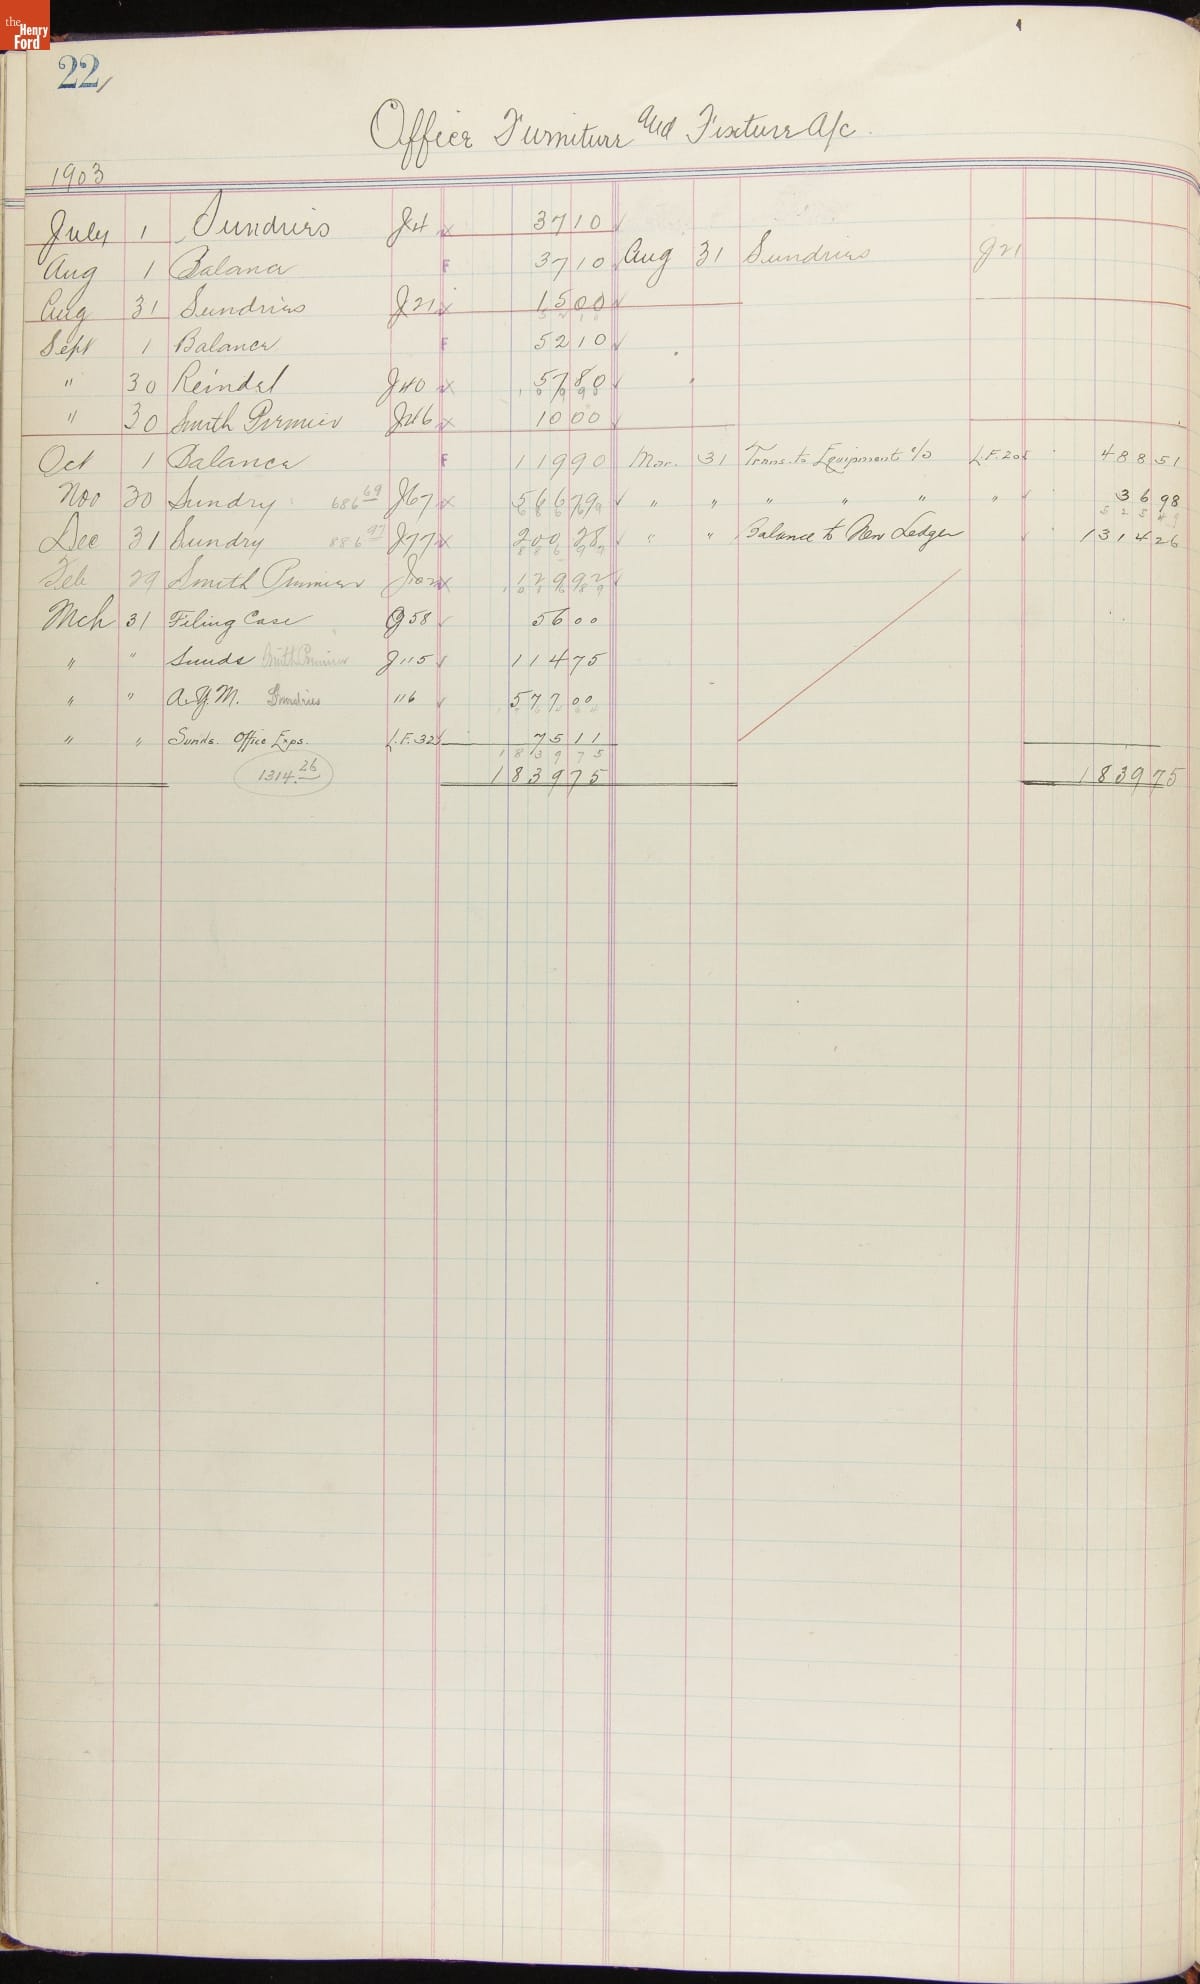 the Henry Ford
22
Office Furniture and Fixture A/c.
1903
July 1 Sundries J4 37 10
Aug 1 Balance F 37 10 Aug 31 Sundries J21
Aug 31 Sundries J21 15 00
Sept 1 Balance F 52 10
" 30 Reindel J40 57 80
" 30 Smith Premier J46 10 00
Oct 1 Balance F 119 90 Mar. 31 Trans. to Equipment a/c L.F. 205 488 51
Nov 30 Sundry 686 69 J67 566 79 " " " " " " 36 98
525 49
Dec 31 Sundry 886 97 J77 200 28 " " Balance to New Ledger 1314 26
Feb 29 Smith Premier J102 129 92
Mch 31 Filing Case J58 56 00
" " Sunds Smith Premier J115 114 75
" " A.Y.M. Sundries 116 577 00
" " Sunds. Office Exps. L.F. 32 75 11
1839 75
1314 26 1839 75 1839 75